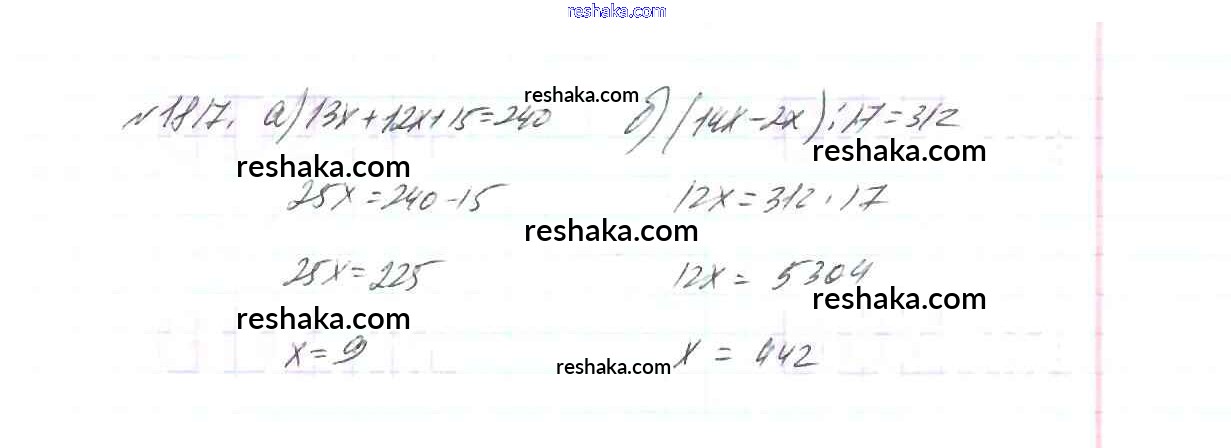 reshaka.com
№1817. а) 13x+12x+15=240 б) (14x-2x):17=312
reshaka.com
reshaka.com reshaka.com
25x=240-15 12x=312·17
reshaka.com
25x=225 12x=5304
reshaka.com reshaka.com
x=9 x=442
reshaka.com